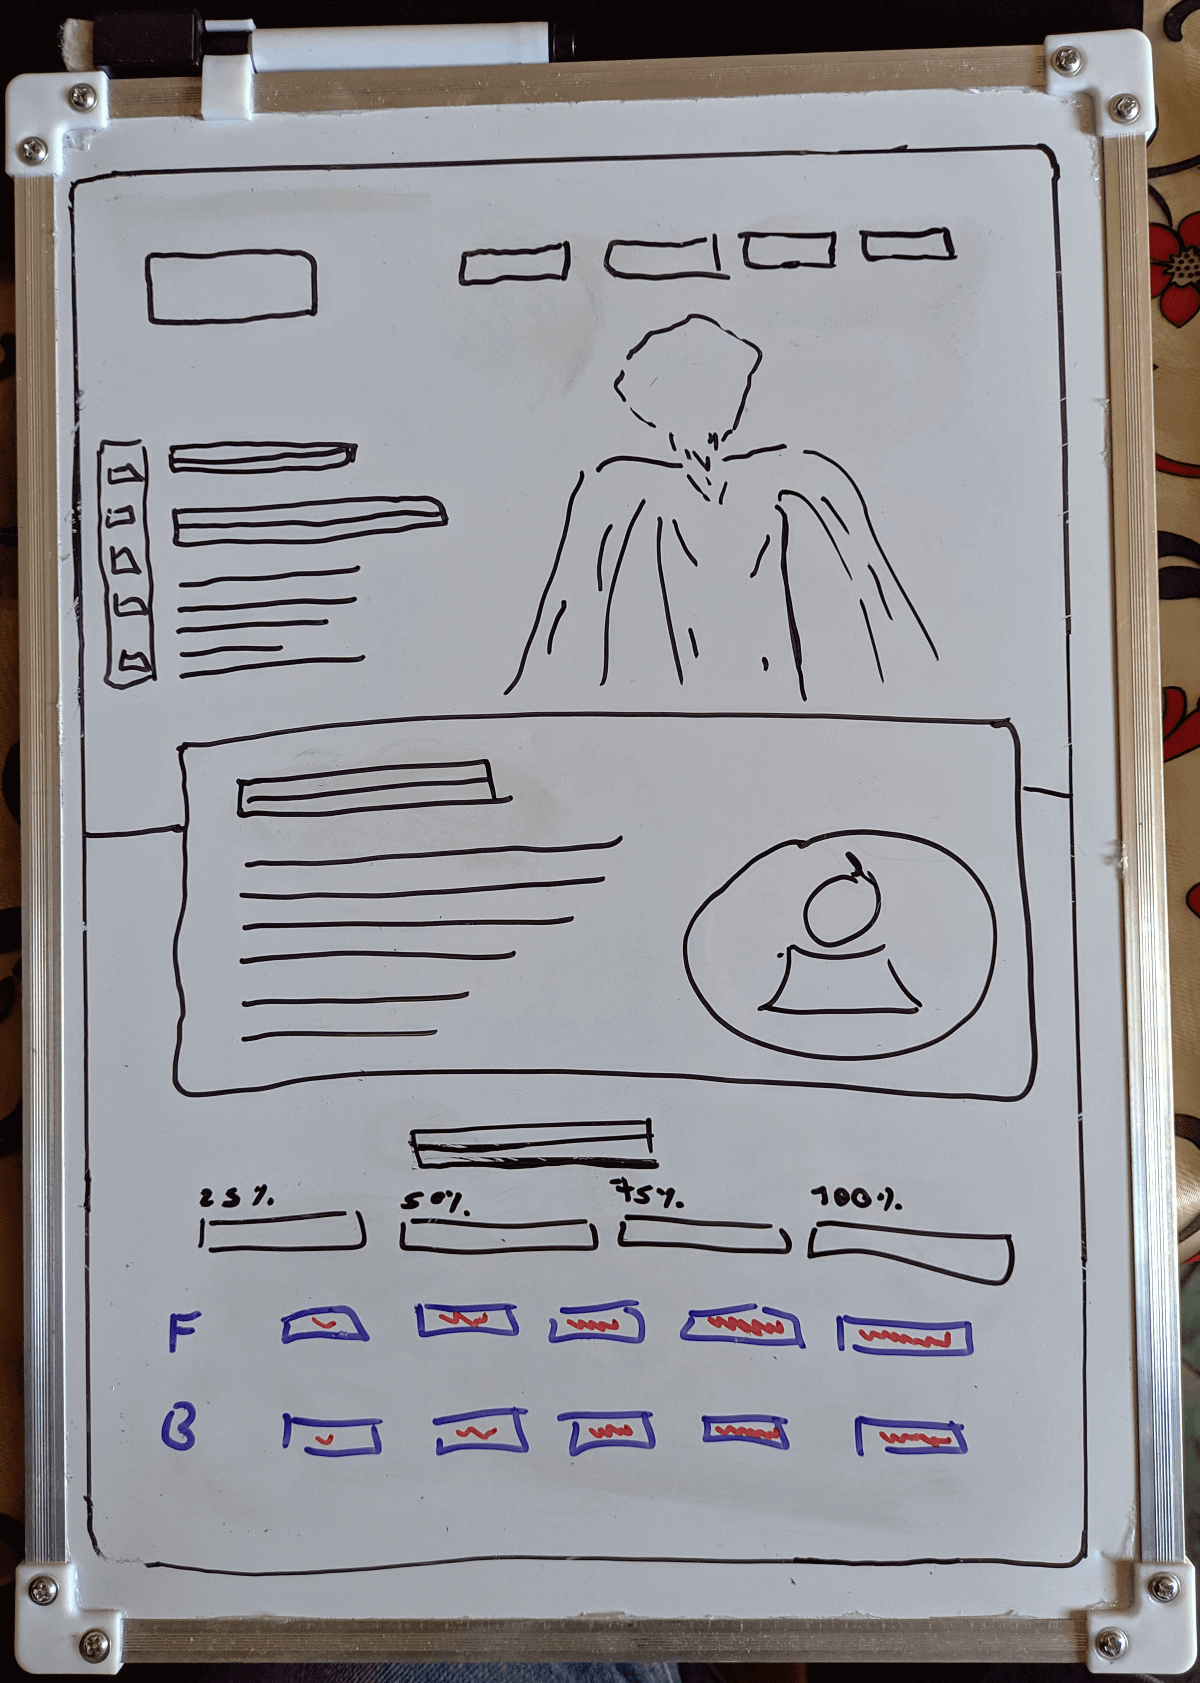 25% 50% 75% 100%
F
B